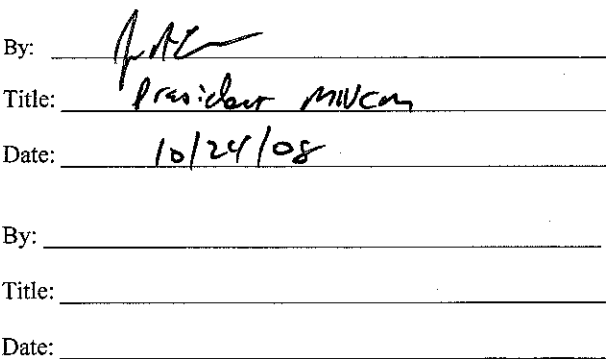 By:
Title: President
Date: 10/24/08
By:
Title:
Date: